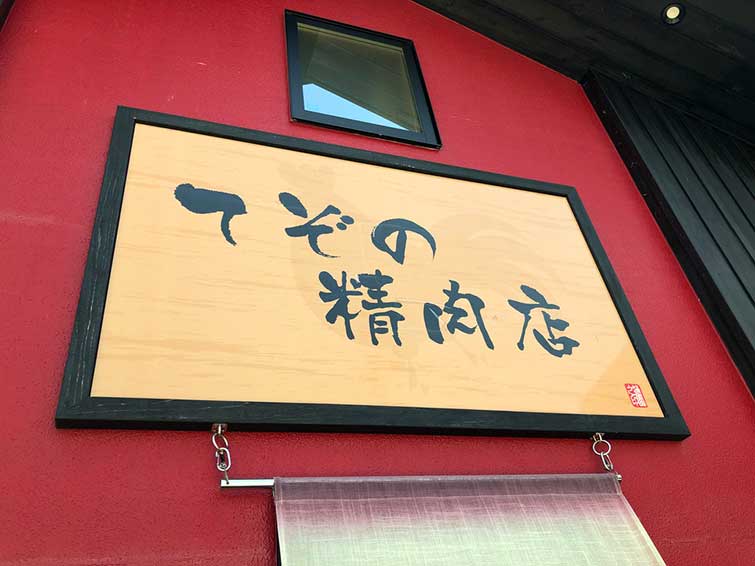 てぞの
精肉店